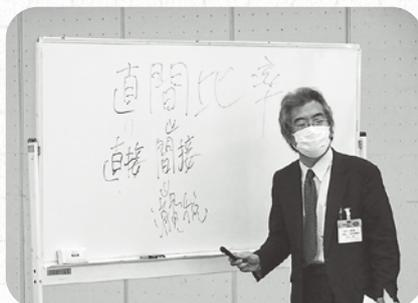 直間比率
直接 間接